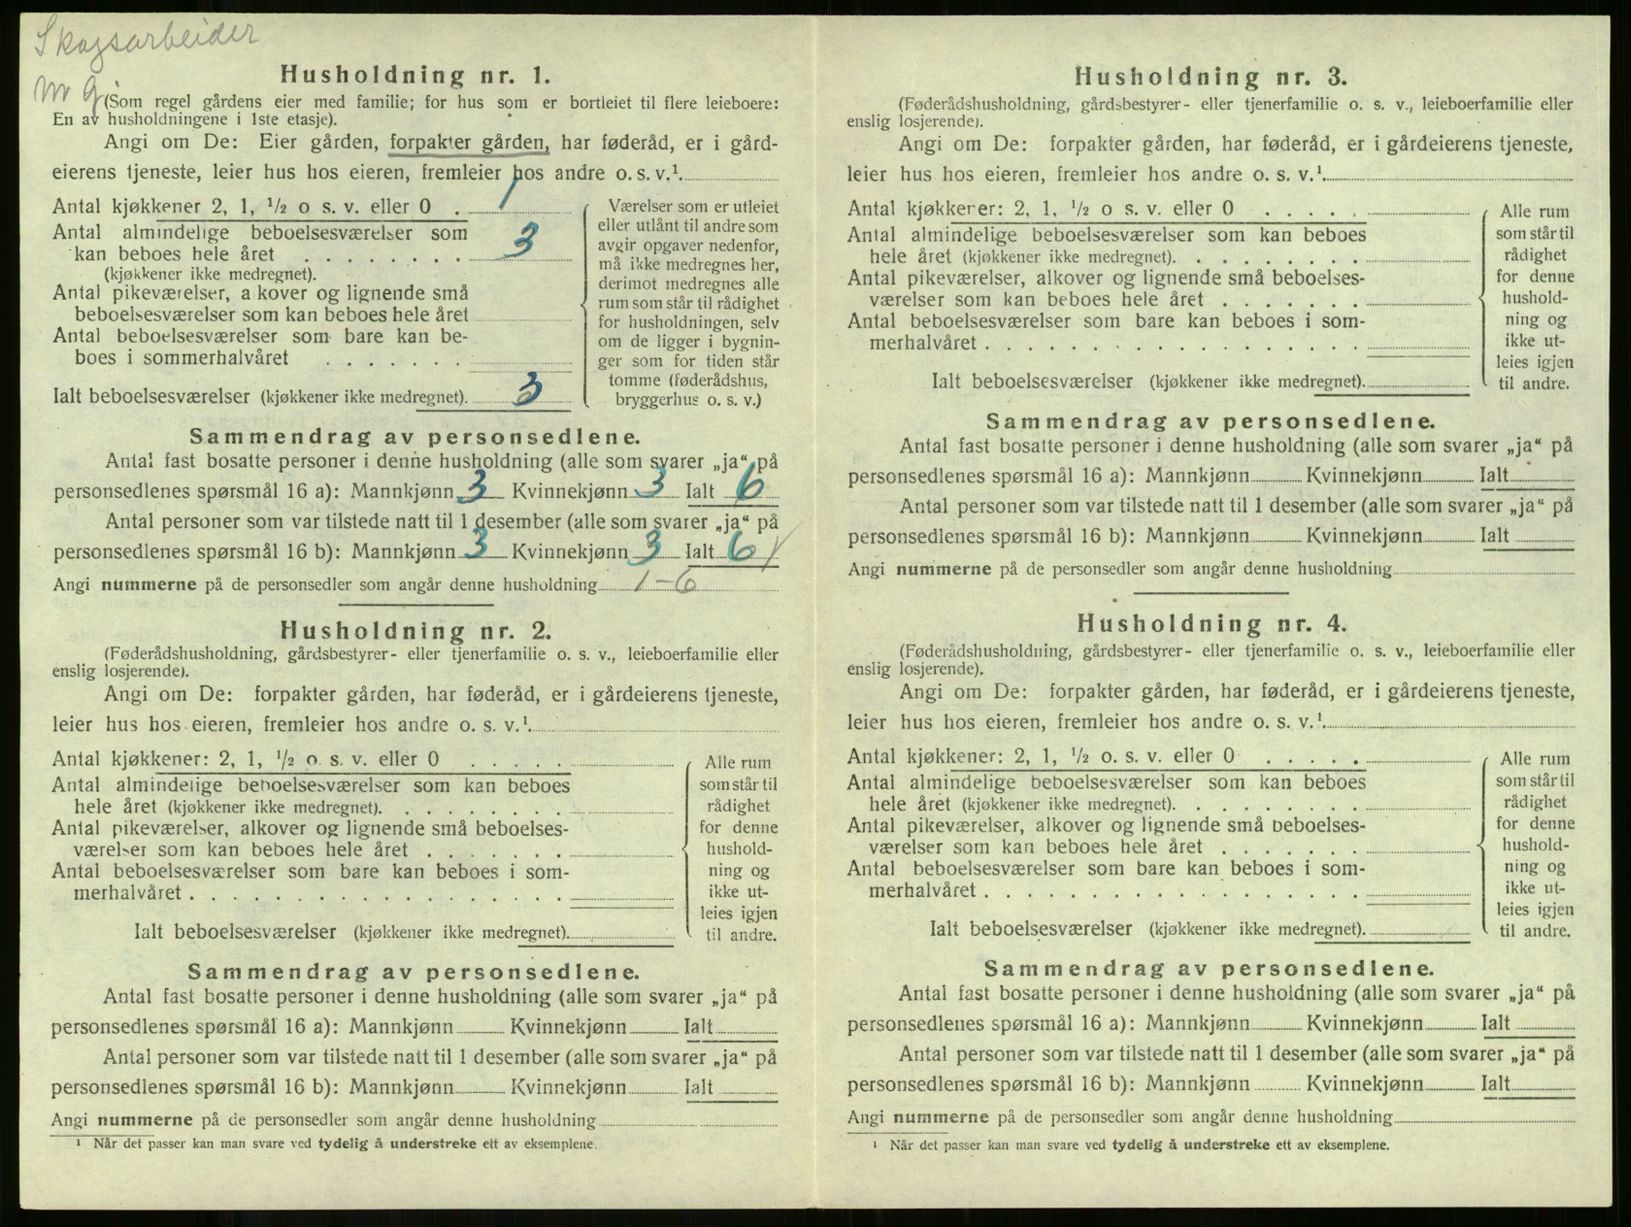 Skogsarbeider
m g.
Husholdning nr. 1.
(Som regel gårdens eier med familie; for hus som er bortleiet til flere leieboere:
En av husholdningene i 1ste etasje).
Angi om De: Eier gården, forpakter gården, har føderåd, er i gård-
eierens tjeneste, leier hus hos eieren, fremleier hos andre o. s. v.¹.
Antal kjøkkener 2, 1, ½ o s. v. eller 0 . 1
Antal almindelige beboelsesværelser som
kan beboes hele året . . . . . . . . 3
(kjøkkener ikke medregnet).
Antal pikeværelser, alkover og lignende små
beboelsesværelser som kan beboes hele året
Antal beboelsesværelser som bare kan be-
boes i sommerhalvåret . . . . . . .
Ialt beboelsesværelser (kjøkkener ikke medregnet). 3
Værelser som er utleiet
eller utlånt til andre som
avgir opgaver nedenfor,
må ikke medregnes her,
derimot medregnes alle
rum som står til rådighet
for husholdningen, selv
om de ligger i bygnin-
ger som for tiden står
tomme (føderådshus,
bryggerhus o. s. v.)
Sammendrag av personsedlene.
Antal fast bosatte personer i denne husholdning (alle som svarer „ja“ på
personsedlenes spørsmål 16 a): Mannkjønn 3 Kvinnekjønn 3 Ialt 6
Antal personer som var tilstede natt til 1 desember (alle som svarer „ja“ på
personsedlenes spørsmål 16 b): Mannkjønn 3 Kvinnekjønn 3 Ialt 6
Angi nummerne på de personsedler som angår denne husholdning 1-6
Husholdning nr. 2.
(Føderådshusholdning, gårdsbestyrer- eller tjenerfamilie o. s. v., leieboerfamilie eller
enslig losjerende).
Angi om De: forpakter gården, har føderåd, er i gårdeierens tjeneste,
leier hus hos eieren, fremleier hos andre o. s. v.¹.
Antal kjøkkener: 2, 1, ½ o. s. v. eller 0 . . . . .
Antal almindelige beboelsesværelser som kan beboes
hele året (kjøkkener ikke medregnet). . . . . . . . .
Antal pikeværelser, alkover og lignende små beboelses-
værelser som kan beboes hele året . . . . . . .
Antal beboelsesværelser som bare kan beboes i som-
merhalvåret . . . . . . . . . . . . . . . . . .
Ialt beboelsesværelser (kjøkkener ikke medregnet).
Alle rum
som står til
rådighet
for denne
hushold-
ning og
ikke ut-
leies igjen
til andre.
Sammendrag av personsedlene.
Antal fast bosatte personer i denne husholdning (alle som svarer „ja“ på
personsedlenes spørsmål 16 a): Mannkjønn Kvinnekjønn Ialt
Antal personer som var tilstede natt til 1 desember (alle som svarer „ja“ på
personsedlenes spørsmål 16 b): Mannkjønn Kvinnekjønn Ialt
Angi nummerne på de personsedler som angår denne husholdning
¹ Når det passer kan man svare ved tydelig å understreke ett av eksemplene.
Husholdning nr. 3.
(Føderådshusholdning, gårdsbestyrer- eller tjenerfamilie o. s. v., leieboerfamilie eller
enslig losjerende).
Angi om De: forpakter gården, har føderåd, er i gårdeierens tjeneste,
leier hus hos eieren, fremleier hos andre o. s. v.¹.
Antal kjøkkener: 2, 1, ½ o s. v. eller 0 . . . . .
Antal almindelige beboelsesværelser som kan beboes
hele året (kjøkkener ikke medregnet). . . . . . . . .
Antal pikeværelser, alkover og lignende små beboelses-
værelser som kan beboes hele året . . . . . . .
Antal beboelsesværelser som bare kan beboes i som-
merhalvåret . . . . . . . . . . . . . . . . . .
Ialt beboelsesværelser (kjøkkener ikke medregnet).
Alle rum
som står til
rådighet
for denne
hushold-
ning og
ikke ut-
leies igjen
til andre.
Sammendrag av personsedlene.
Antal fast bosatte personer i denne husholdning (alle som svarer „ja“ på
personsedlenes spørsmål 16 a): Mannkjønn Kvinnekjønn Ialt
Antal personer som var tilstede natt til 1 desember (alle som svarer „ja“ på
personsedlenes spørsmål 16 b): Mannkjønn Kvinnekjønn Ialt
Angi nummerne på de personsedler som angår denne husholdning
Husholdning nr. 4.
(Føderådshusholdning, gårdsbestyrer- eller tjenerfamilie o. s. v., leieboerfamilie eller
enslig losjerende).
Angi om De: forpakter gården, har føderåd, er i gårdeierens tjeneste,
leier hus hos eieren, fremleier hos andre o. s. v.¹.
Antal kjøkkener: 2, 1, ½ o. s. v. eller 0 . . . . .
Antal almindelige beboelsesværelser som kan beboes
hele året (kjøkkener ikke medregnet). . . . . . . . .
Antal pikeværelser, alkover og lignende små beboelses-
værelser som kan beboes hele året . . . . . . .
Antal beboelsesværelser som bare kan beboes i som-
merhalvåret . . . . . . . . . . . . . . . . . .
Ialt beboelsesværelser (kjøkkener ikke medregnet).
Alle rum
som står til
rådighet
for denne
hushold-
ning og
ikke ut-
leies igjen
til andre.
Sammendrag av personsedlene.
Antal fast bosatte personer i denne husholdning (alle som svarer „ja“ på
personsedlenes spørsmål 16 a): Mannkjønn Kvinnekjønn Ialt
Antal personer som var tilstede natt til 1 desember (alle som svarer „ja“ på
personsedlenes spørsmål 16 b): Mannkjønn Kvinnekjønn Ialt
Angi nummerne på de personsedler som angår denne husholdning
¹ Når det passer kan man svare ved tydelig å understreke ett av eksemplene.